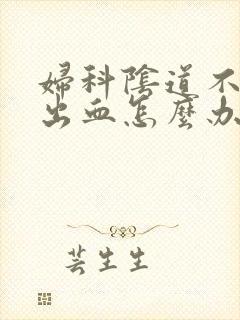 婦科陰道不
出血怎麼办
芸生生